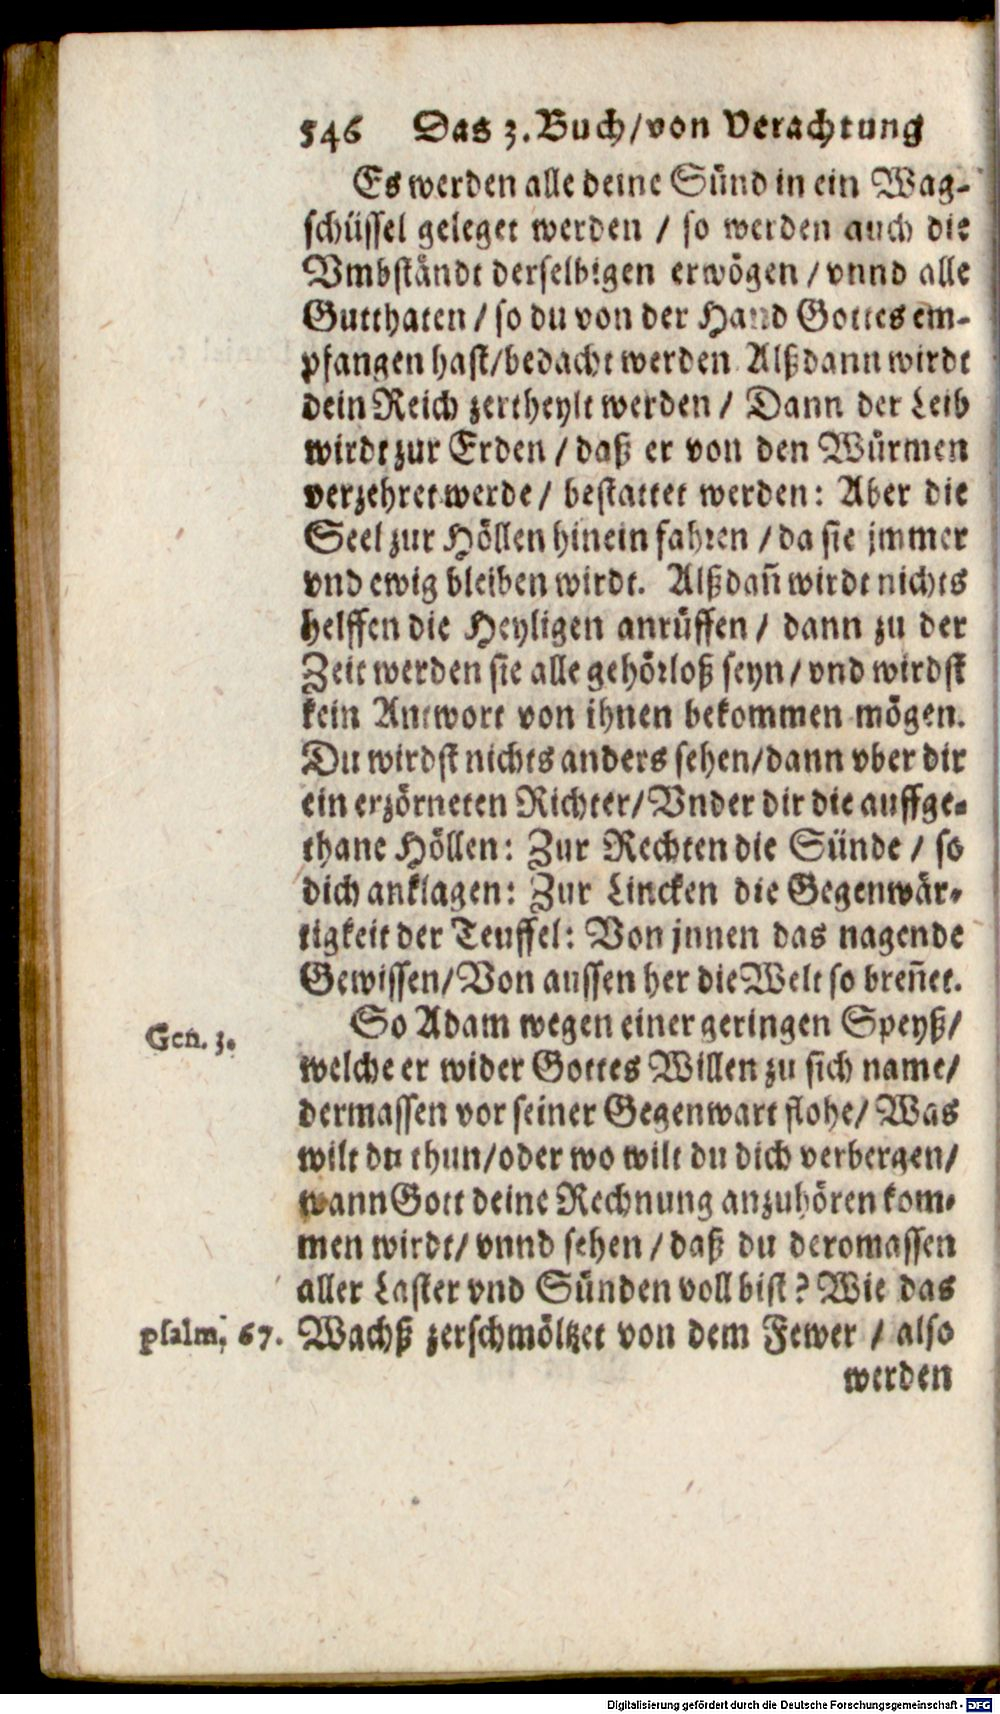 546 Das 3. Buch/von Verachtung
Es werden alle deine Sünd in ein Wag-
schüssel geleget werden / so werden auch die
Vmbständt derselbigen erwögen / vnnd alle
Gutthaten / so du von der Hand Gottes em-
pfangen hast/bedacht werden. Alßdann wirdt
dein Reich zertheylt werden / Dann der Leib
wirdt zur Erden / daß er von den Würmen
verzehret werde / bestattet werden: Aber die
Seel zur Höllen hinein fahren / da sie jmmer
vnd ewig bleiben wirdt. Alßdañ wirdt nichts
helffen die Heyligen anrüffen / dann zu der
Zeit werden sie alle gehörloß seyn / vnd wirdst
kein Antwort von ihnen bekommen mögen.
Du wirdst nichts anders sehen/dann vber dir
ein erzörneten Richter/Vnder dir die auffge-
thane Höllen: Zur Rechten die Sünde / so
dich anklagen: Zur Lincken die Gegenwär-
tigkeit der Teuffel: Von jnnen das nagende
Gewissen/Von aussen her die Welt so breñet.
Gen. 3. So Adam wegen einer geringen Speyß/
welche er wider Gottes Willen zu sich name/
dermassen vor seiner Gegenwart flohe/ Was
wilt du thun/oder wo wilt du dich verbergen/
wann Gott deine Rechnung anzuhören kom-
men wirdt/ vnnd sehen / daß du deromassen
aller Laster vnd Sünden voll bist? Wie das
Psalm. 67. Wachß zerschmöltzet von dem Fewer / also
werden
Digitalisierung gefördert durch die Deutsche Forschungsgemeinschaft - DFG